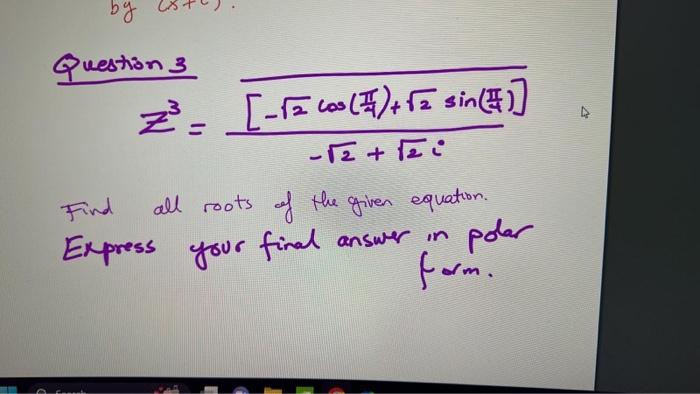 by (x+i).
Question 3
z³ = [-√2 cos(π/4)+√2 sin(π/4)]
-√2 + √2 i
Find all roots of the given equation.
Express your final answer in polar
form.